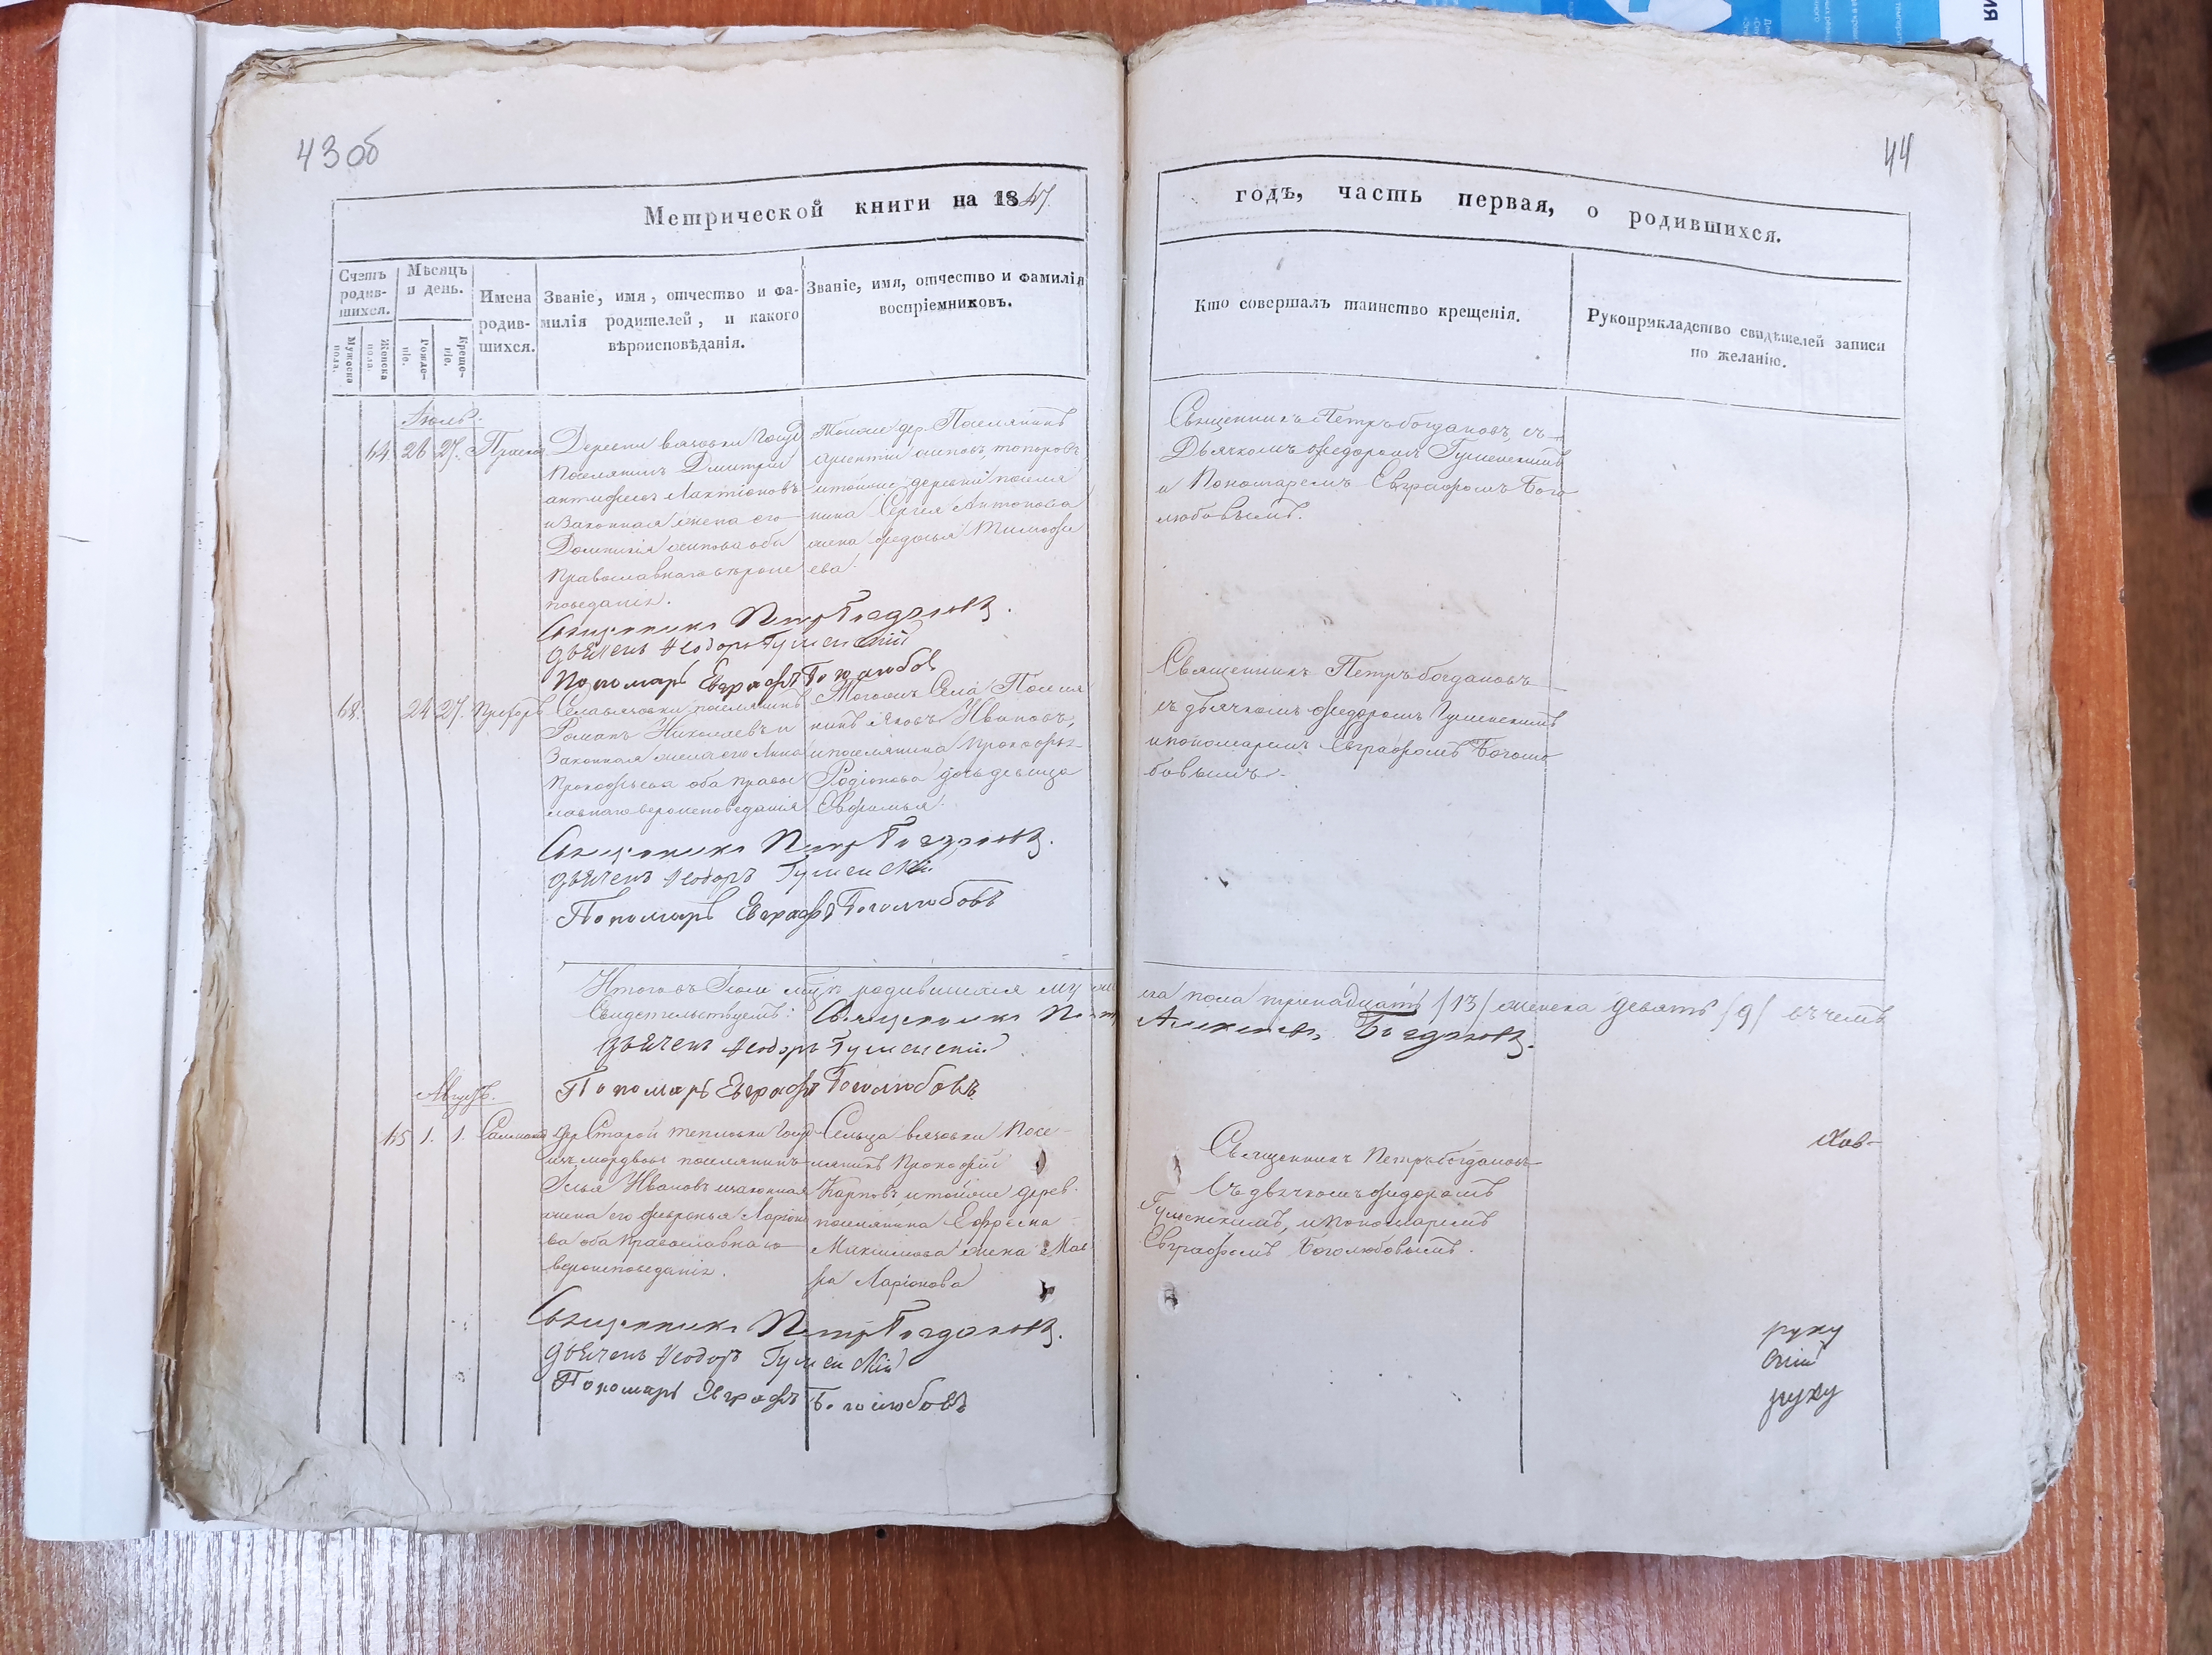 43 об
44
Метрической книги на 1847.
годъ, часть первая, о родившихся.
Счетъ родившихся.
Мужеска пола.
Женска пола.
Мѣсяцъ и день.
Рожденіе.
Крещеніе.
Имена родившихся.
Званіе, имя, отчество и фамилія родителей, и какого вѣроисповѣданія.
Званіе, имя, отчество и фамилія воспріемниковъ.
Кто совершалъ таинство крещенія.
Рукоприкладство свидѣтелей записи по желанію.
Іюль
64. 26 27.
Деревни
Поселянинъ Дмитрий
Лактіоновъ
и законная жена его
Домникія оба
Православнаго вѣроис
поведанія.
Тойже дер. Поселянинъ
и тойже деревни поселя
нина Сергея Антонова
жена Федосья Тимофе
ева.
Священникъ Петръ Богдановъ, съ
Дьячкомъ Федоромъ Гуменскимъ
и Пономаремъ Евграфомъ Бого
любовымъ.
Священникъ Петръ Богдановъ.
дьячекъ Ѳеодоръ Гуменскій
Пономарь Евграфъ Боголюбовъ
68. 24 27.
поселянинъ
Романъ Николаевъ и
Законная жена его Анна
Прокофьева оба Правос
лавнаго вероисповеданія
Тогожъ Села Поселя
нинъ Яковъ Ивановъ,
и поселянина
Родіонова дочь девица
Евфимья.
Священникъ Петръ Богдановъ
съ дьячкомъ Федоромъ Гуменскимъ
и пономаремъ Евграфомъ Боголю
бовымъ.
Священникъ Петръ Богдановъ.
дьячекъ Ѳеодоръ Гуменскій.
Пономарь Евграфъ Боголюбовъ
Итого въ Іюле мцѣ родившихся муже
ска пола тринадцать /13/ женска девять /9/ въ чемъ
Свидетельствуемъ: Священникъ Петръ
Алексеевъ Богдановъ.
дьячекъ Ѳеодоръ Гуменскій.
Пономарь Евграфъ Боголюбовъ
Августъ.
65 1. 1.
дер Старой
изъ мордвы поселянинъ
Илья Ивановъ и законная
жена его Февронья Ларіоно
ва оба Православнаго
вероисповеданія.
Сельца Посе-
лянинъ Прокофій
Карповъ, и тойже дерев.
поселянина Ефрема
Максимова жена Мав
ра Ларіонова
Священникъ Петръ Богдановъ
Съ дьячкомъ Федоромъ
Гуменскимъ, и пономаремъ
Евграфомъ Боголюбовымъ.
Священникъ Петръ Богдановъ.
дьячекъ Ѳеодоръ Гуменскій
Пономарь Евграфъ Боголюбовъ
руку
руку